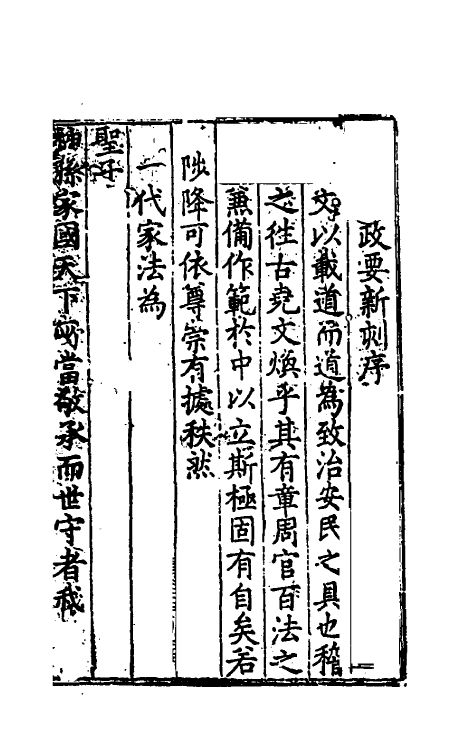 政要新刻序
文以載道而道為致治安民之具也稽
之徃古堯文煥乎其有章周官百法之
兼備作範於中以立斯極固有自矣若
陟降可依尊崇有據秩然
一代家法為
聖子
神孫家國天下所當敬承而世守者哉